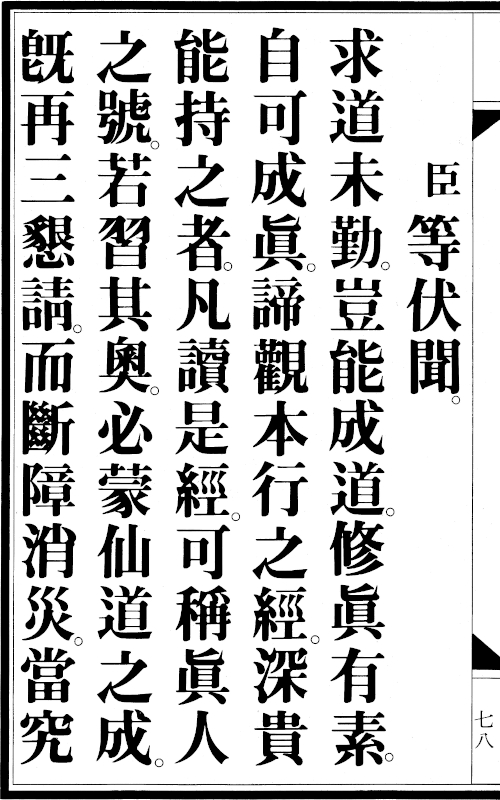 臣等伏聞。
求道未勤。豈能成道。修眞有素。
自可成眞。諦觀本行之經。深貴
能持之者。凡讀是經。可稱眞人
之號。若習其奧。必蒙仙道之成。
旣再三懇請。而斷障消災。當究
七八